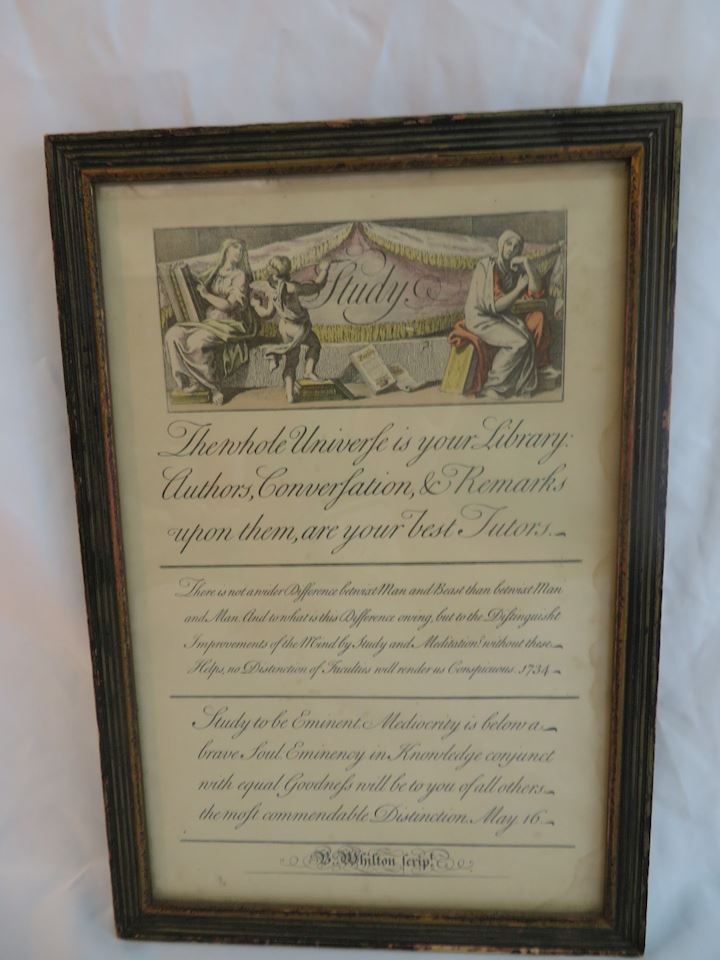 Study.
The whole Univerſe is your Library:
Authors, Converſation, & Remarks
upon them, are your best Tutors.
There is not a wider Difference betwixt Man and Beast than betwixt Man
and Man. And to what is this Difference owing, but to the Diſtinguisht
Improvements of the Mind by Study and Meditation? without these
Helps, no Distinction of Faculties will render us Conspicuous. 1734
Study to be Eminent. Mediocrity is below a
brave Soul. Eminency in Knowledge conjunct
with equal Goodneſs will be to you of all others
the moſt commendable Distinction. May 16.
B. Whilton ſcrip!